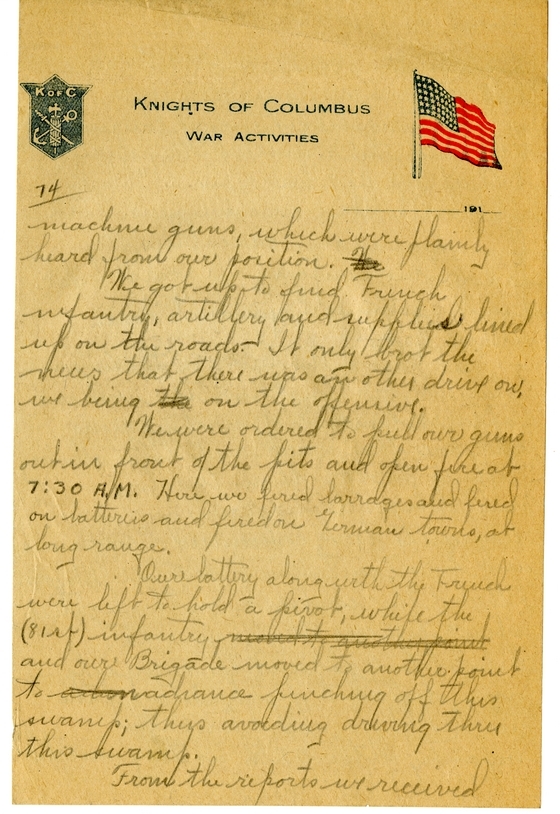 K OF C
KNIGHTS OF COLUMBUS
WAR ACTIVITIES
191
74
machine guns, which were plainly
heard from our position. The
We got up to find French
infantry, artillery and supplies lined
up on the roads. It only brot the
news that there was another drive on,
we being the on the offensive.
We were ordered to pull our guns
out in front of the pits and open fire at
7:30 A.M. Here we fired barrages and fired
on batteries and fired on German towns, at
long range.
Oure battery along with the French
were left to hold a pivot, while the
(81st) infantry moved to another point
and oure Brigade moved to another point
to advance pinching off this
swamp; thus avoiding driving thru
this swamp.
From the reports we received